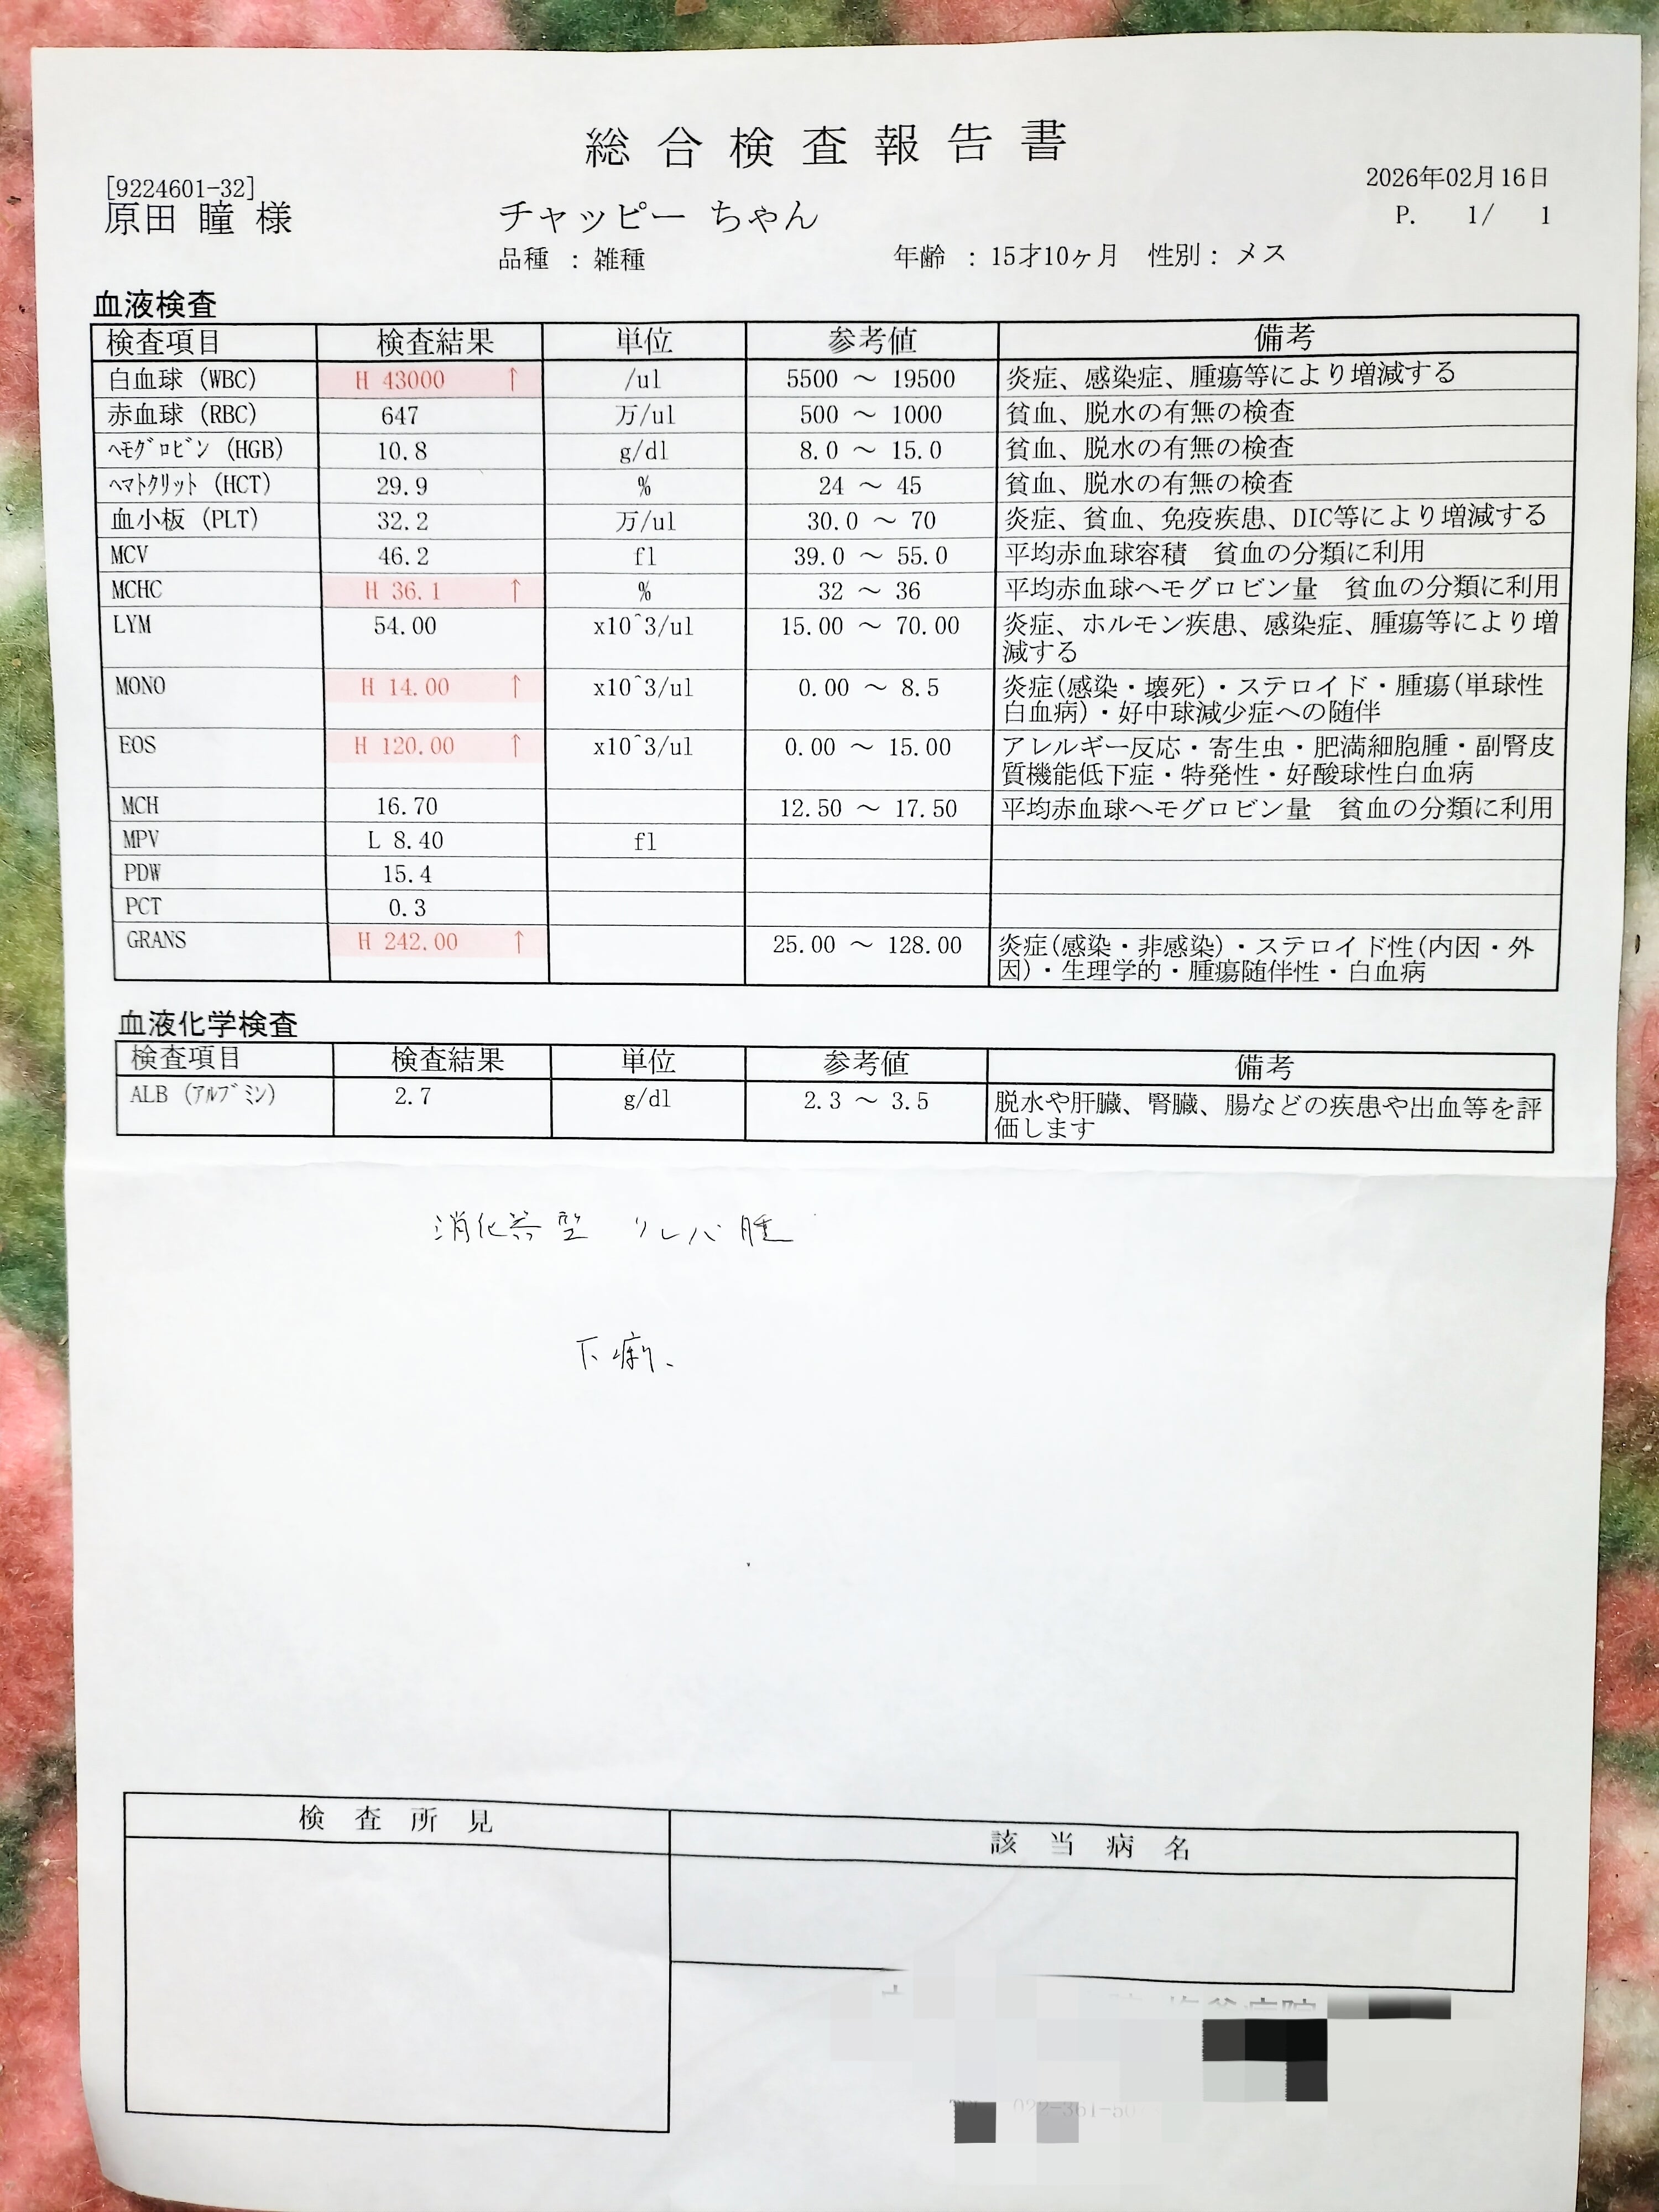 総合検査報告書
[9224601-32]
2026年02月16日
原田 瞳 様
チャッピー ちゃん
P. 1/ 1
品種 : 雑種
年齢 : 15才10ヶ月 性別: メス
血液検査
検査項目 検査結果 単位 参考値 備考
白血球 (WBC) H 43000 ↑ /ul 5500 ～ 19500 炎症、感染症、腫瘍等により増減する
赤血球 (RBC) 647 万/ul 500 ～ 1000 貧血、脱水の有無の検査
ﾍﾓｸﾞﾛﾋﾞﾝ (HGB) 10.8 g/dl 8.0 ～ 15.0 貧血、脱水の有無の検査
ﾍﾏﾄｸﾘｯﾄ (HCT) 29.9 % 24 ～ 45 貧血、脱水の有無の検査
血小板 (PLT) 32.2 万/ul 30.0 ～ 70 炎症、貧血、免疫疾患、DIC等により増減する
MCV 46.2 fl 39.0 ～ 55.0 平均赤血球容積 貧血の分類に利用
MCHC H 36.1 ↑ % 32 ～ 36 平均赤血球ヘモグロビン量 貧血の分類に利用
LYM 54.00 x10^3/ul 15.00 ～ 70.00 炎症、ホルモン疾患、感染症、腫瘍等により増
減する
MONO H 14.00 ↑ x10^3/ul 0.00 ～ 8.5 炎症(感染・壊死)・ステロイド・腫瘍(単球性
白血病)・好中球減少症への随伴
EOS H 120.00 ↑ x10^3/ul 0.00 ～ 15.00 アレルギー反応・寄生虫・肥満細胞腫・副腎皮
質機能低下症・特発性・好酸球性白血病
MCH 16.70 12.50 ～ 17.50 平均赤血球ヘモグロビン量 貧血の分類に利用
MPV L 8.40 fl
PDW 15.4
PCT 0.3
GRANS H 242.00 ↑ 25.00 ～ 128.00 炎症(感染・非感染)・ステロイド性(内因・外
因)・生理学的・腫瘍随伴性・白血病
血液化学検査
検査項目 検査結果 単位 参考値 備考
ALB (ｱﾙﾌﾞﾐﾝ) 2.7 g/dl 2.3 ～ 3.5 脱水や肝臓、腎臓、腸などの疾患や出血等を評
価します
消化器型 リンパ腫
下痢、
検査所見
該当病名